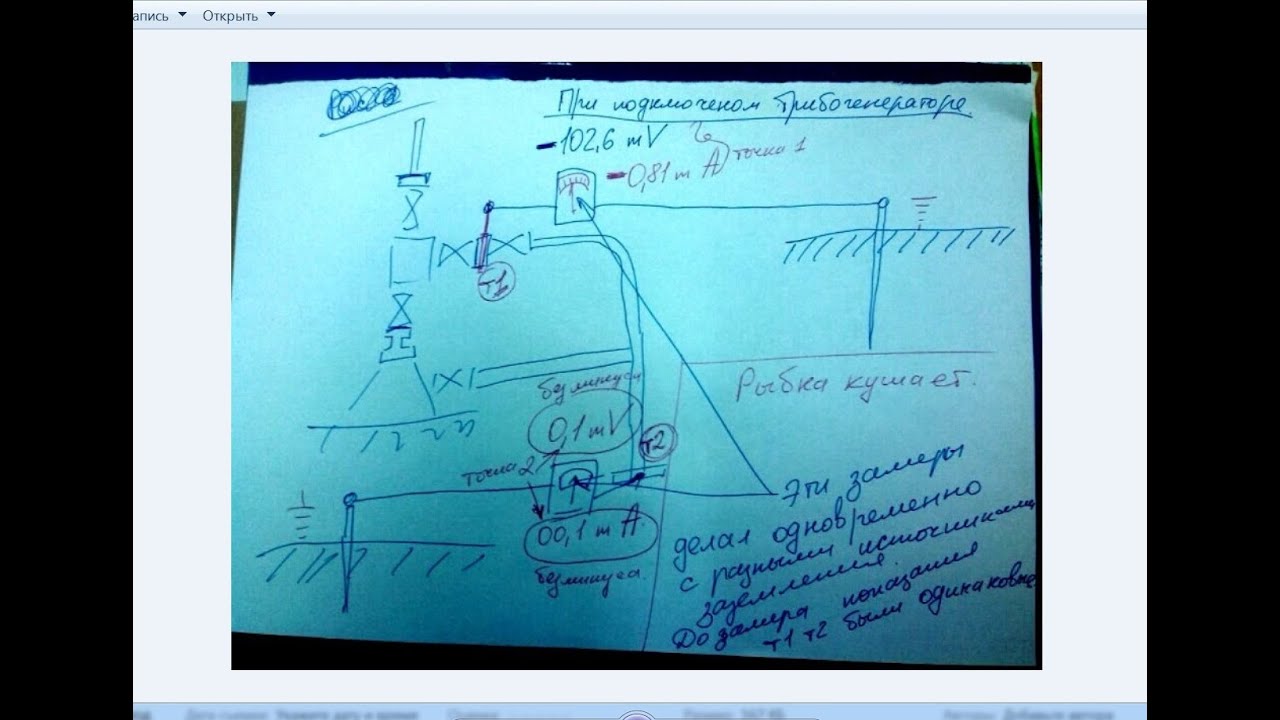 апись Открыть
При подключеном Трибогенераторе
-102,6 mV
-0,81 m A точка 1
т1
Рыбка кушает.
без минуса
0,1 mV
т2
точка 2
00,1 m A
без минуса.
Эти замеры
делал одновременно
с разными источниками
заземления.
До замера показания
т1 т2 были одинаковые